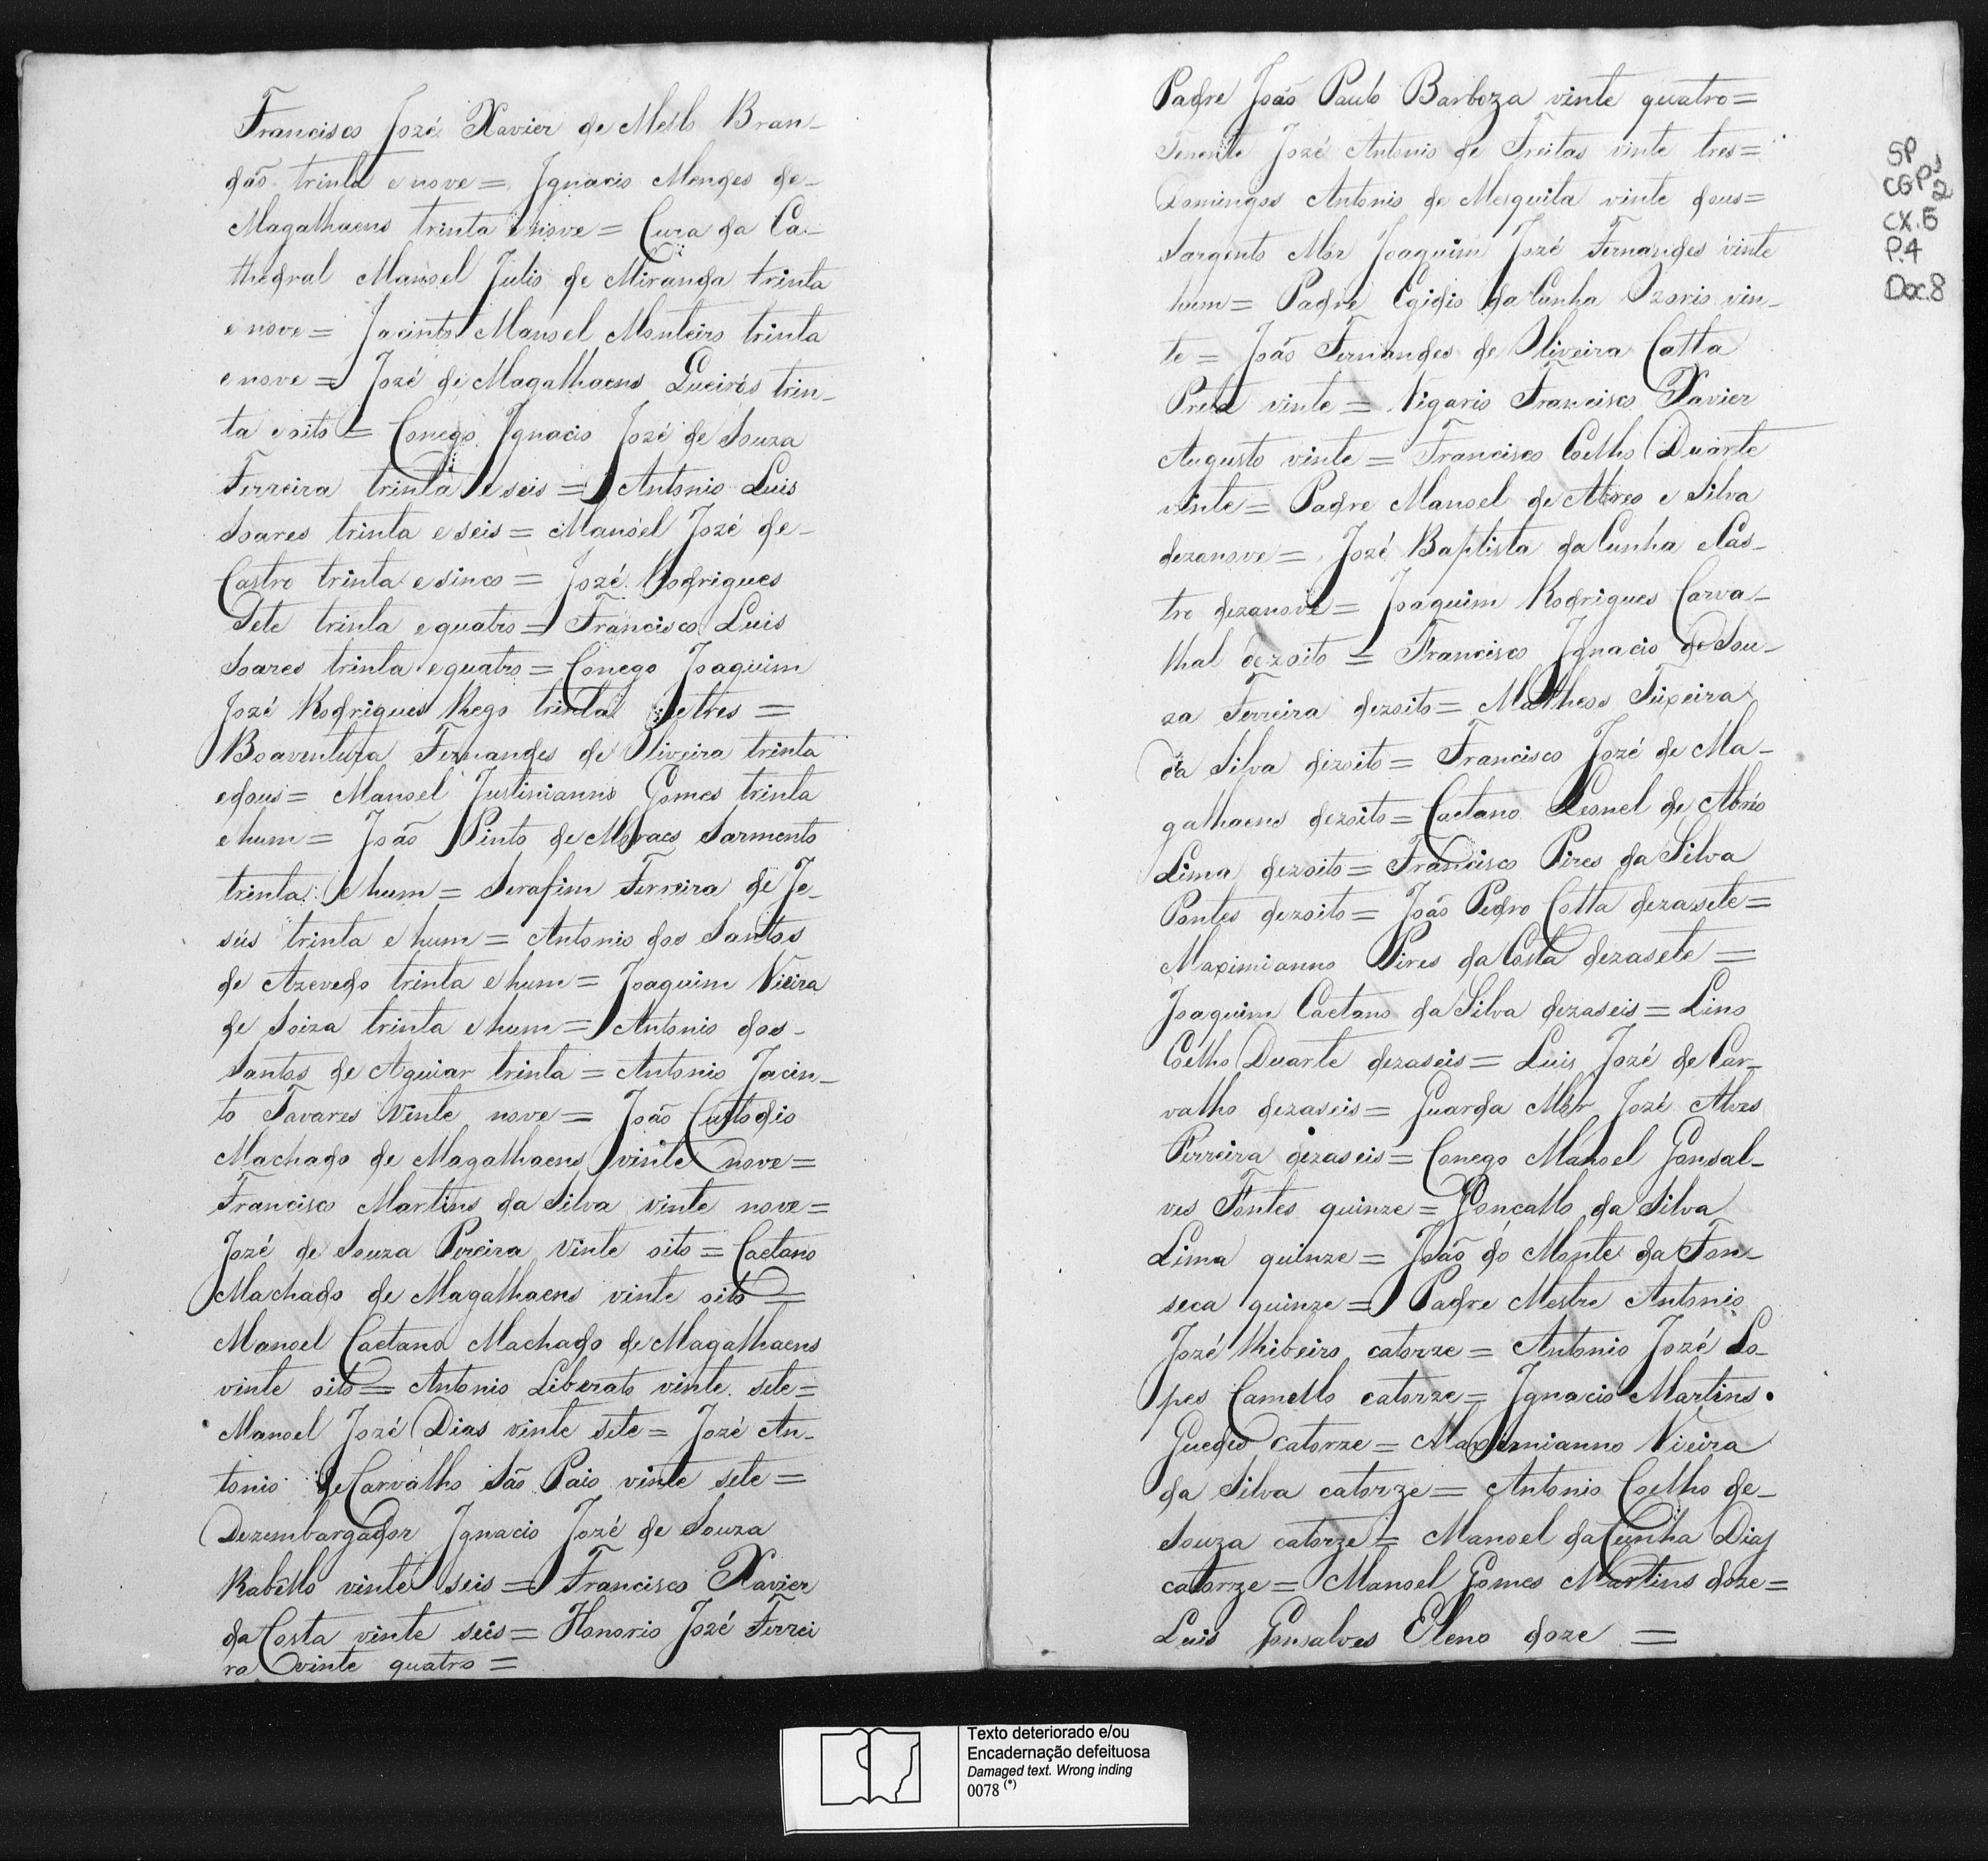 Francisco Jozé Xavier de Mello Bran-
dão trinta e nove = Ignacio Mendes de-
Magalhaens trinta e nove = Cura da Ca-
thedral Manoel Julio de Miranda trinta
e nove = Jacinto Manoel Monteiro trinta
e nove = Jozé de Magalhaens Queirós trin-
ta e oito = Conego Ignacio Jozé de Souza
Ferreira trinta e seis = Antonio Luis
Soares trinta e seis = Manoel Jozé de-
Castro trinta e sinco = Jozé Rodrigues
Sete trinta e quatro = Francisco Luis
Soares trinta e quatro = Conego Joaquim
Jozé Rodrigues Rego trinta e tres =
Boaventura Fernandes de Oliveira trinta
e dous = Manoel Justinianno Gomes trinta
e hum = João Pinto de Moraes Sarmento
trinta e hum = Serafim Ferreira de Je-
sus trinta e hum = Antonio dos Santos
de Azevedo trinta e hum = Joaquim Vieira
de Soiza trinta e hum = Antonio dos-
Santos de Aguiar trinta = Antonio Jacin-
to Tavares Vinte nove = João Custodio
Machado de Magalhaens vinte nove =
Francisco Martins da Silva vinte nove =
Jozé de Souza Pereira Vinte oito = Caetano
Machado de Magalhaens vinte oito =
Manoel Caetano Machado de Magalhaens
vinte oito = Antonio Liberato vinte sete =
Manoel Jozé Dias vinte sete = Jozé An-
tonio de Carvalho São Paio vinte sete =
Dezembargador Ignacio Jozé de Souza
Rabello vinte seis = Francisco Xavier
da Costa vinte seis = Honorio Jozé Ferrei
ra vinte quatro =
Padre João Paulo Barboza vinte quatro =
Tenente Jozé Antonio de Freitas vinte tres =
Domingos Antonio de Mesquita vinte dous =
Sargento Mor Joaquim Jozé Fernandes vinte
hum = Padre Egidio da Cunha Ozorio vin-
te = João Fernandes de Oliveira Cotta
Preta vinte = Vigario Francisco Xavier
Augusto vinte = Francisco Coelho Duarte
vinte = Padre Manoel de Abreo e Silva
dezanove = Jozé Baptista da Cunha e Cas-
tro dezanove = Joaquim Rodrigues Carva-
lhal dezoito = Francisco Ignacio de Sou-
za Ferreira dezoito = Matheos Teixeira
da Silva dezoito = Francisco Jozé de Ma-
galhaens dezoito = Caetano Leonel de Abrêo
Lima dezoito = Francisco Pires da Silva
Pontes dezoito = João Pedro Cotta dezasete =
Maximianno Pires da Costa dezasete =
Joaquim Caetano da Silva dezaseis = Lino
Coelho Duarte dezaseis = Luis Jozé de Car-
valho dezaseis = Guarda Mór Jozé Alves
Perreira dezaseis = Conego Manoel Gonsal-
ves Fontes quinze = Goncallo da Silva
Lima quinze = João do Monte da Fon-
seca quinze = Padre Mestre Antonio
Jozé Ribeiro catorze = Antonio Jozé Lo-
pes Camello catorze = Ignacio Martins
Guedes catorze = Maximianno Vieira
da Silva catorze = Antonio Coelho de-
Souza catorze = Manoel da Cunha Dias
catorze = Manoel Gomes Martins doze =
Luis Gonsalves Eleno doze =
SP
CGP 1
2
CX.5
P.4
Doc.8
Texto deteriorado e/ou
Encadernação defeituosa
Damaged text. Wrong inding
0078 (*)